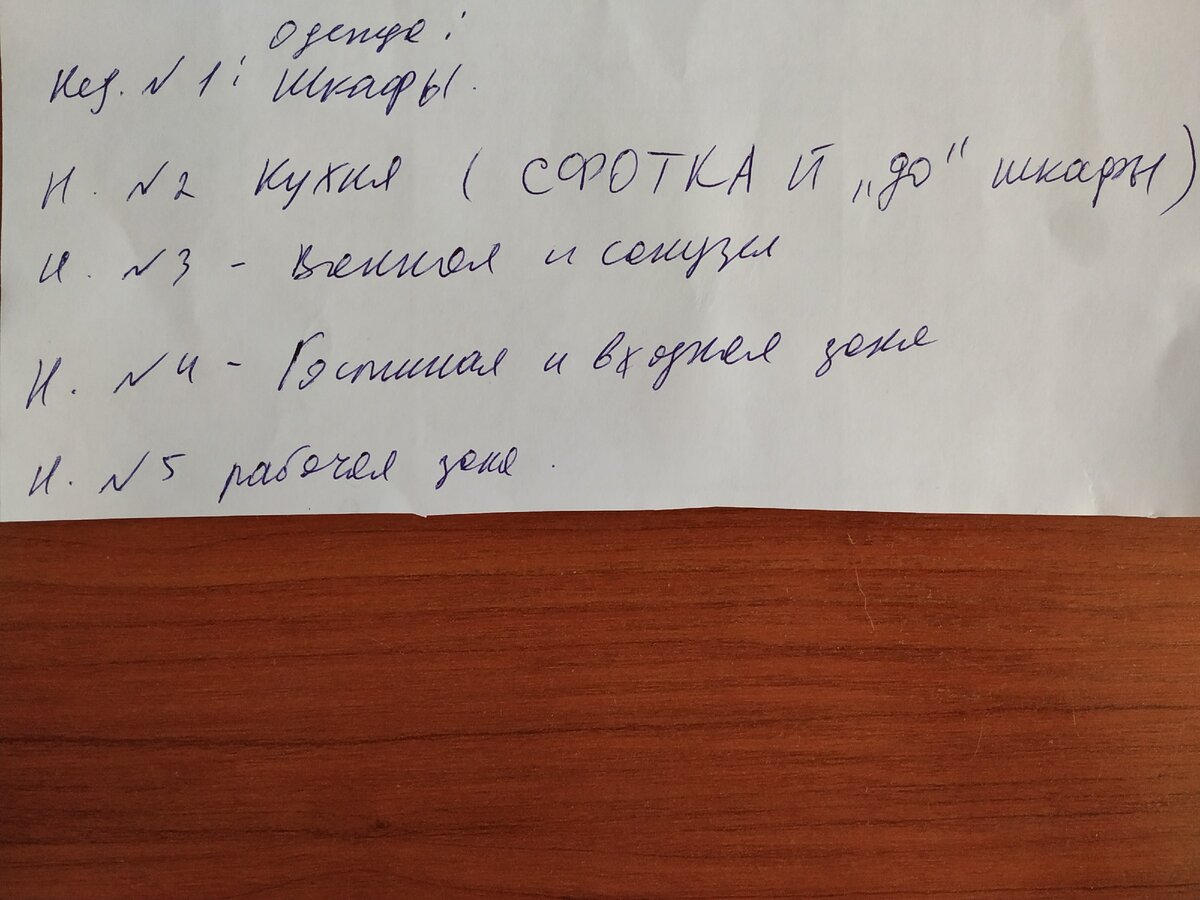 Одежда:
Нед. №1: Шкафы.
Н. №2 Кухня ( СФОТКАЙ „до“ шкафы)
Н. №3 - Ванная и санузел
Н. №4 - Гостиная и входная зона
Н. №5 рабочая зона.